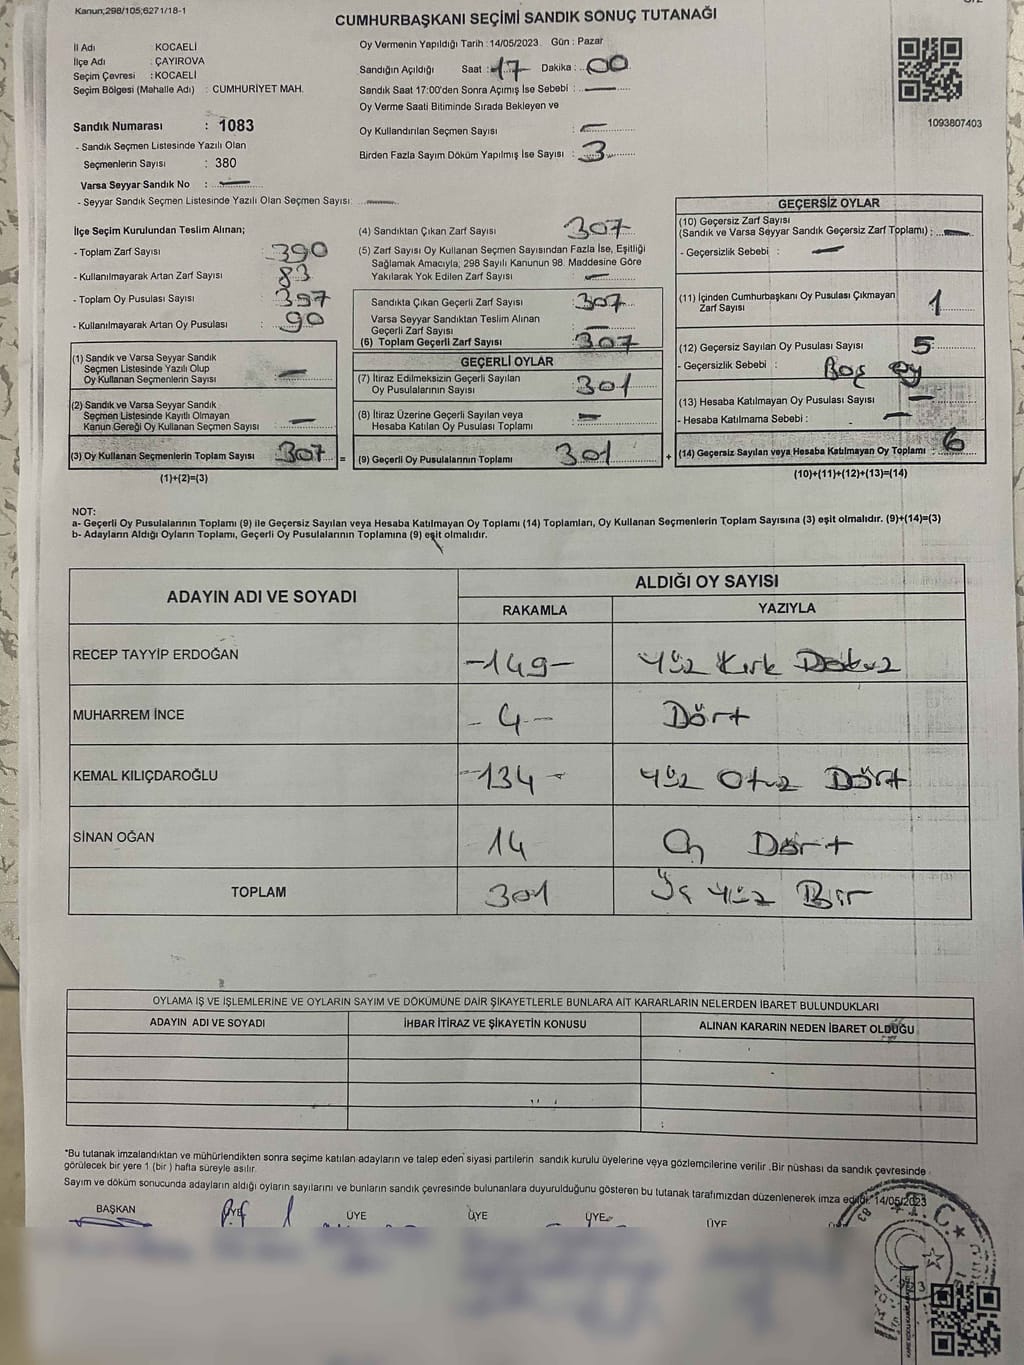 Kanun;298/105;6271/18-1
CUMHURBAŞKANI SEÇİMİ SANDIK SONUÇ TUTANAĞI
İl Adı KOCAELİ
İlçe Adı : ÇAYIROVA
Seçim Çevresi : KOCAELİ
Seçim Bölgesi (Mahalle Adı) : CUMHURİYET MAH.
Sandık Numarası : 1083
- Sandık Seçmen Listesinde Yazılı Olan
Seçmenlerin Sayısı : 380
Varsa Seyyar Sandık No : —
- Seyyar Sandık Seçmen Listesinde Yazılı Olan Seçmen Sayısı: —
Oy Vermenin Yapıldığı Tarih :14/05/2023 Gün : Pazar
Sandığın Açıldığı Saat : 17 Dakika : 00
Sandık Saat 17:00'den Sonra Açımış İse Sebebi : —
Oy Verme Saati Bitiminde Sırada Bekleyen ve
Oy Kullandırılan Seçmen Sayısı : —
Birden Fazla Sayım Döküm Yapılmış İse Sayısı : 3
1093807403
İlçe Seçim Kurulundan Teslim Alınan;
- Toplam Zarf Sayısı : 390
- Kullanılmayarak Artan Zarf Sayısı : 83
- Toplam Oy Pusulası Sayısı : 397
- Kullanılmayarak Artan Oy Pusulası : 90
(1) Sandık ve Varsa Seyyar Sandık
Seçmen Listesinde Yazılı Olup
Oy Kullanan Seçmenlerin Sayısı : —
(2) Sandık ve Varsa Seyyar Sandık
Seçmen Listesinde Kayıtlı Olmayan
Kanun Gereği Oy Kullanan Seçmen Sayısı : —
(3) Oy Kullanan Seçmenlerin Toplam Sayısı : 307 =
(1)+(2)=(3)
(4) Sandıktan Çıkan Zarf Sayısı : 307
(5) Zarf Sayısı Oy Kullanan Seçmen Sayısından Fazla İse, Eşitliği
Sağlamak Amacıyla; 298 Sayılı Kanunun 98. Maddesine Göre
Yakılarak Yok Edilen Zarf Sayısı : —
Sandıkta Çıkan Geçerli Zarf Sayısı : 307
Varsa Seyyar Sandıktan Teslim Alınan
Geçerli Zarf Sayısı : —
(6) Toplam Geçerli Zarf Sayısı : 307
GEÇERLİ OYLAR
(7) İtiraz Edilmeksizin Geçerli Sayılan
Oy Pusulalarının Sayısı : 301
(8) İtiraz Üzerine Geçerli Sayılan veya
Hesaba Katılan Oy Pusulası Toplamı : —
(9) Geçerli Oy Pusulalarının Toplamı : 301 +
GEÇERSİZ OYLAR
(10) Geçersiz Zarf Sayısı
(Sandık ve Varsa Seyyar Sandık Geçersiz Zarf Toplamı) : —
- Geçersizlik Sebebi : —
(11) İçinden Cumhurbaşkanı Oy Pusulası Çıkmayan
Zarf Sayısı 1
(12) Geçersiz Sayılan Oy Pusulası Sayısı : 5
- Geçersizlik Sebebi : Boş oy
(13) Hesaba Katılmayan Oy Pusulası Sayısı : —
- Hesaba Katılmama Sebebi : —
(14) Geçersiz Sayılan veya Hesaba Katılmayan Oy Toplamı : 6
(10)+(11)+(12)+(13)=(14)
NOT:
a- Geçerli Oy Pusulalarının Toplamı (9) ile Geçersiz Sayılan veya Hesaba Katılmayan Oy Toplamı (14) Toplamları, Oy Kullanan Seçmenlerin Toplam Sayısına (3) eşit olmalıdır. (9)+(14)=(3)
b- Adayların Aldığı Oyların Toplamı, Geçerli Oy Pusulalarının Toplamına (9) eşit olmalıdır.
ADAYIN ADI VE SOYADI ALDIĞI OY SAYISI
RAKAMLA YAZIYLA
RECEP TAYYİP ERDOĞAN -149- Yüz Kırk Dokuz
MUHARREM İNCE - 4 - Dört
KEMAL KILIÇDAROĞLU -134- Yüz Otuz Dört
SİNAN OĞAN 14 On Dört
TOPLAM 301 Üç Yüz Bir
OYLAMA İŞ VE İŞLEMLERİNE VE OYLARIN SAYIM VE DÖKÜMÜNE DAİR ŞİKAYETLERLE BUNLARA AİT KARARLARIN NELERDEN İBARET BULUNDUKLARI
ADAYIN ADI VE SOYADI İHBAR İTİRAZ VE ŞİKAYETİN KONUSU ALINAN KARARIN NEDEN İBARET OLDUĞU
*Bu tutanak imzalandıktan ve mühürlendikten sonra seçime katılan adayların ve talep eden siyasi partilerin sandık kurulu üyelerine veya gözlemcilerine verilir .Bir nüshası da sandık çevresinde
görülecek bir yere 1 (bir ) hafta süreyle asılır.
Sayım ve döküm sonucunda adayların aldığı oyların sayılarını ve bunların sandık çevresinde bulunanlara duyurulduğunu gösteren bu tutanak tarafımızdan düzenlenerek imza edildi. 14/05/2023
BAŞKAN ÜYE ÜYE ÜYE ÜYE ÜYE
T.C.